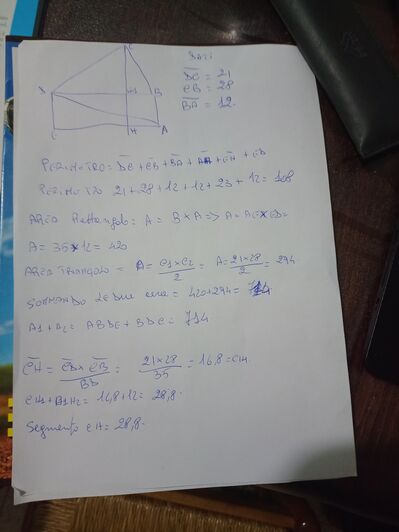 C
D H1 B
E H A
DATI
DC = 21
CB = 28
BA = 12
PERIMETRO = DC + CB + BA + AH + EH + ED
PERIMETRO 21 + 28 + 12 + 12 + 23 + 12 = 108
AREA Rettangolo = A = B × A => A = AE × ED =
A = 35 × 12 = 420
AREA TRIANGOLO = A = C1 × C2 / 2 = A = 21 × 28 / 2 = 294
SOMMANDO LE DUE aree = 420 + 294 = 714
A1 + A2 = ABDE + BDC = 714
CH = CD × CB / BD = 21 × 28 / 35 = 16,8 = CH
CH1 + H1H2 = 16,8 + 12 = 28,8
Segmento CH = 28,8